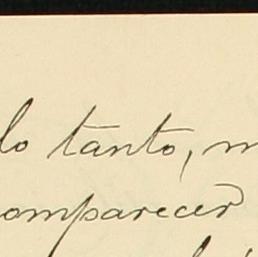 lo tanto, m
omparecer